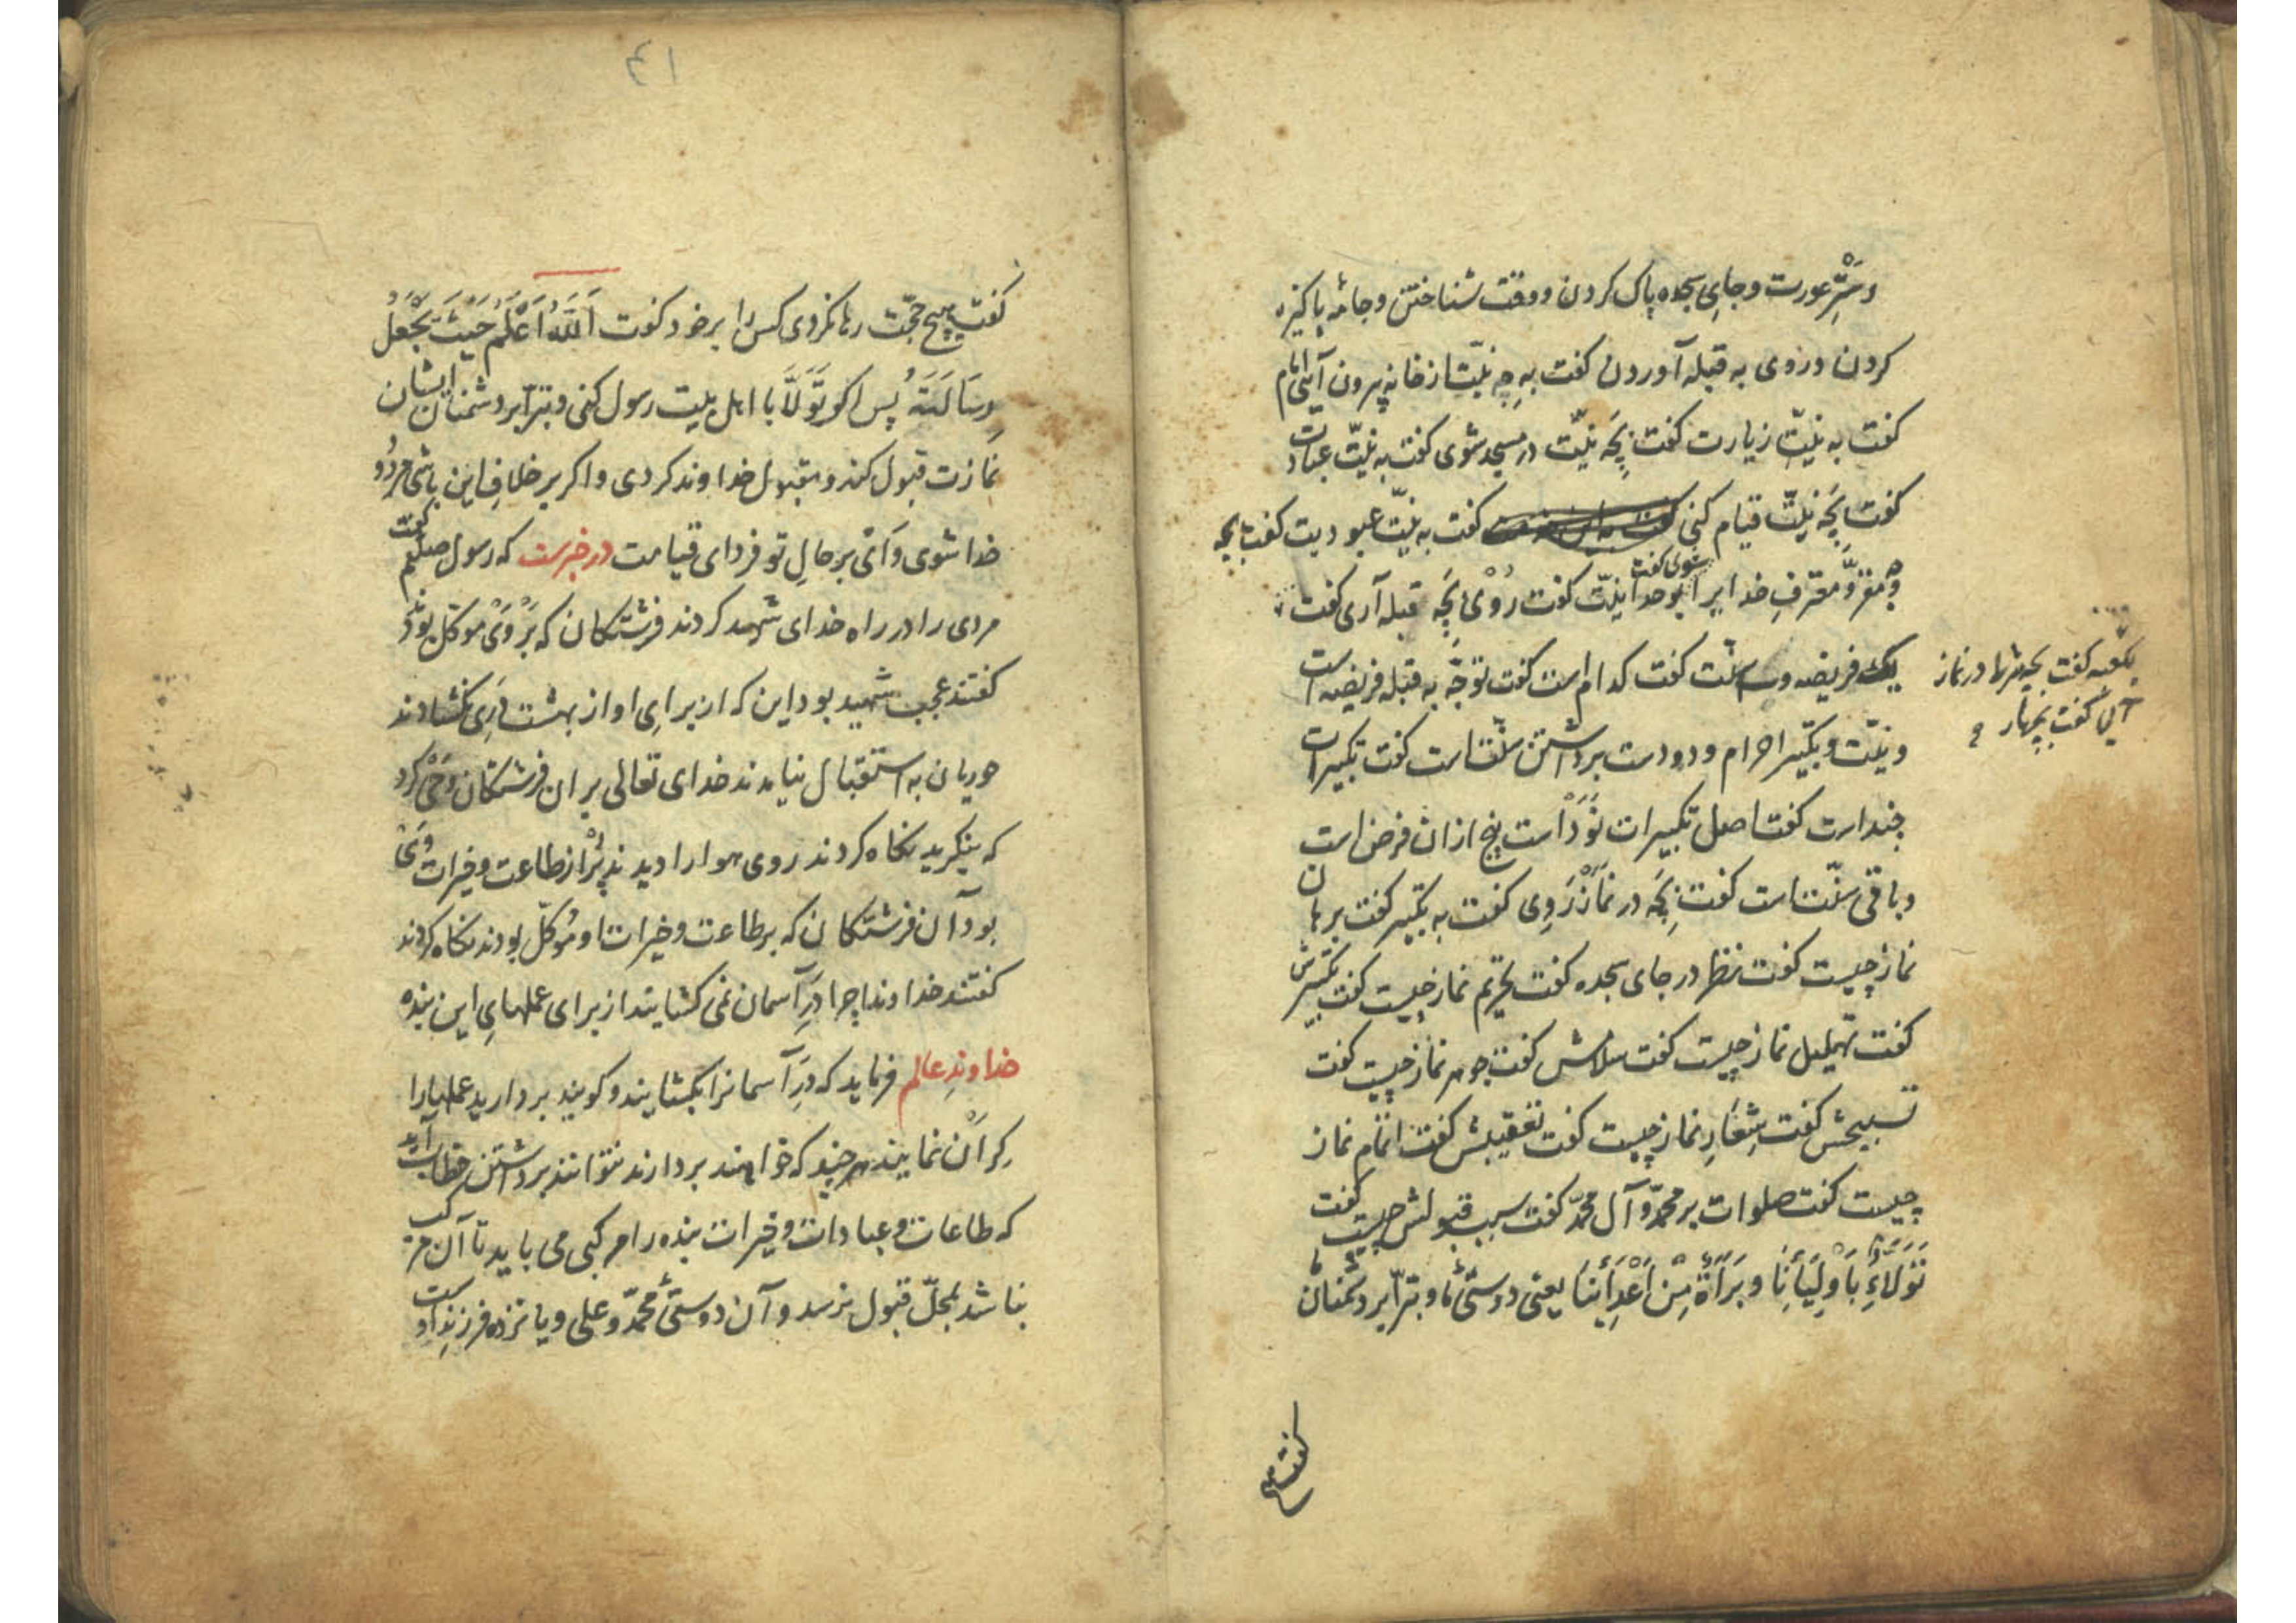 وسَتْرِ عورت وجایِ سجده پاک کردن ووقت شناختن وجامهٔ پاکیزه
کردن وروی به قبله آوردن کفت بهِ چِه نیّت از خانه پیرون آئی امام
کفت به نیّتِ زیارت کفت بِچَه نیّت در مسجد شوی کفت به نیّت عبادت
کفت بِچَه نیّت قیام کنی کفت به نیّت عبودیت کفت بچه
یک فریضه و سنّت کفت کدام است کفت توجّه به قبله فریضه است
ونیّت وتکبیر احرام ودودست برداشتن سنّت است کفت تکبیرات
چند است کفت اصل تکبیرات نَوَدْ است پنج ازان فرض است
وباقی سنّت است کفت بِچَه در نَمازْ رَوِی کفت به تکبیر کفت برهان
نماز چیست کفت نظر در جای سجده کفت تحریم نماز چیست کفت تکبیرش
کفت تهلیل نماز چیست کفت سلامش کفت جوهر نماز چیست کفت
تسبیحش کفت شِعَارِ نماز چیست کفت تعقیبش کفت اتمام نماز
چیست کفت صلوات بر محمّد وآل محمّد کفت سبب قبولش چیست کفت
تَوَلَاءُِ بِأَوْلِیَائِنَا وبَرَاءَةُ مِنْ اَعْدَائِنَا یعنی دوستیٔ ما وتبرّا بر دشمنان ما
کفت هیچ
یکعبه کفت بچه شرط در نماز
آیی کفت بچهار و
٤١
کفت هیچ حجّت رها نکردی کس را بر خود کفت اَللَّهُ اَعْلَمُ حَیْثُ یَجْعَلُ
رِسَالَتَهُ پس اکر تَوَلَّا با اهل بیت رسول کنی وتبرّا بر دشمنان ایشان
نمازت قبول کند ومقبول خداوند کردی واکر بر خلافِ این باشی مردُود
خدا شوی وَای بر حالِ تو فردای قیامت در خبرست که رسول صلعم کفت
مردی را در راه خدای شهید کردند فرشتکان که بَرْ وَیْ موکّل بودند
کفتند عجب شهید بود این که از برایِ او از بهشت دَرِی نکشادند
حوریان به استقبال نیامدند خدای تعالی بر ان فرشتکان وَحْی کرد
که بنکرید نکاه کردند روی هوا را دیدند پُرْ از طاعت وخیرات وَیْ
بود آن فرشتکان که بر طاعت وخیرات او مُوکّل بودند نکاه کردند
کفتند خداوندا چرا دَرِ آسمان نمی کشایند از برای عملهایِ این بنده
خداوندِ عالم فرماید که دَرِ آسمانرا بکشایند وکویند بردارید عملها را
کراْن نمایند هر چند که خواهند بردارند نتوانند برداشتن خطاب آید
که طاعات وعبادات وخیرات بنده را مرکبی می باید تا آن مرکب
نباشد بمحلّ قبول نرسد وآن دوستیٔ محمّد وعلی ویازده فرزندِ اوست